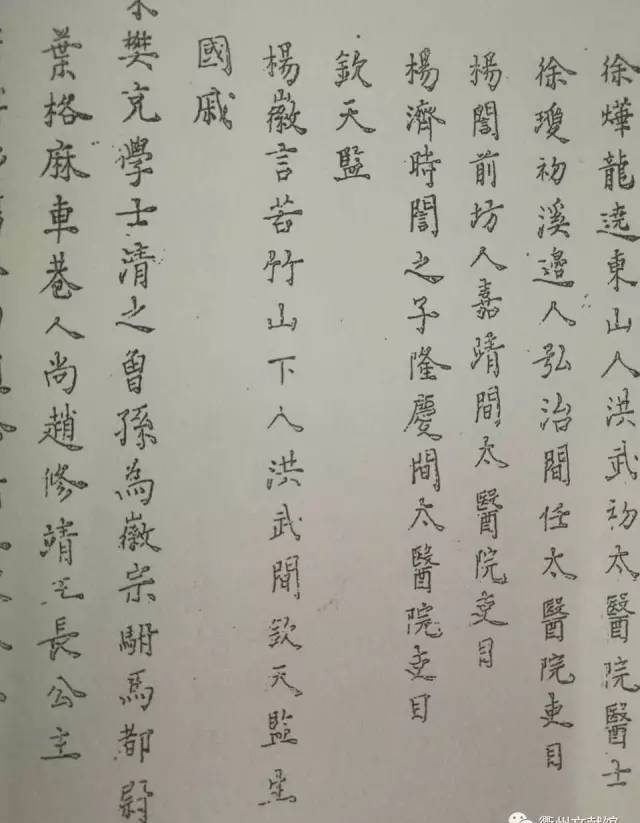 徐燁龍遶東山人洪武初太醫院醫士
徐瓊初溪邉人弘治間任太醫院吏目
楊誾前坊人嘉靖間太醫院吏目
楊濟時誾之子隆慶間太醫院吏目
欽天監
楊徽言苦竹山下人洪武間欽天監
國戚
樊克學士清之曾孫為徽宗駙馬都尉
葉格麻車巷人尚趙修靖長公主
衢州文献馆